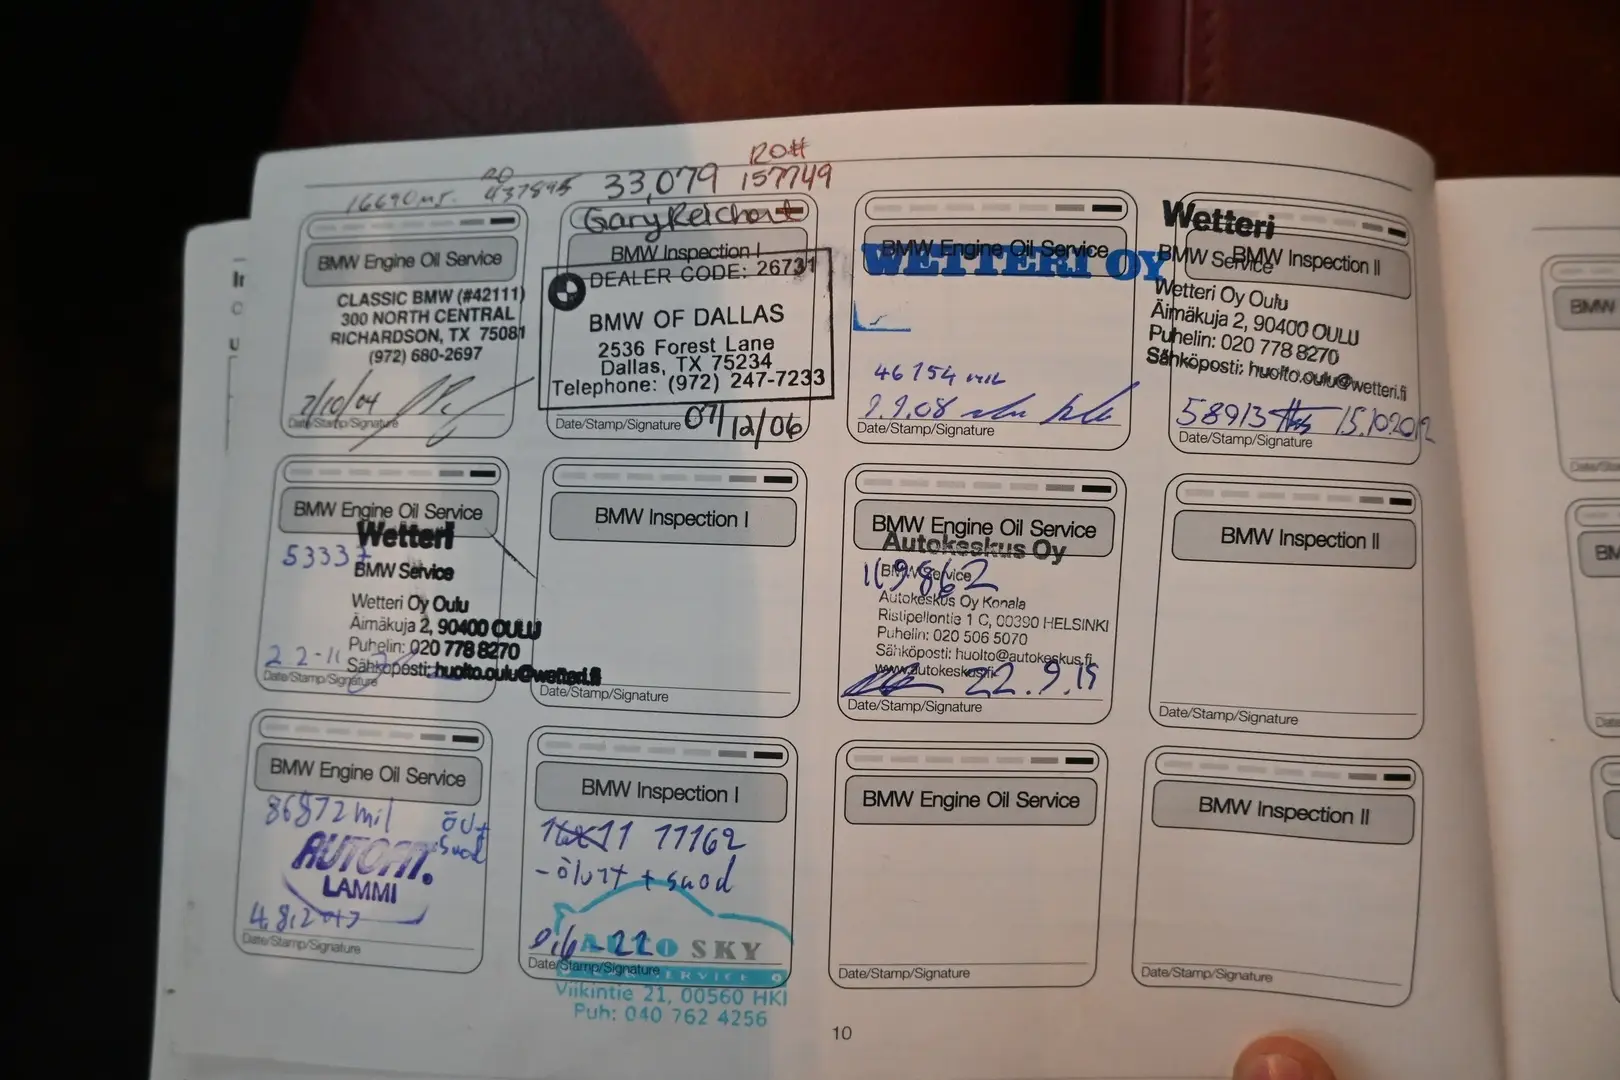 16690 mi. RO 437895
BMW Engine Oil Service
CLASSIC BMW (#42111)
300 NORTH CENTRAL
RICHARDSON, TX 75081
(972) 680-2697
7/10/04
Date/Stamp/Signature
33,079 RO# 157749
Gary Reichart
BMW Inspection I
DEALER CODE: 26731
BMW OF DALLAS
2536 Forest Lane
Dallas, TX 75234
Telephone: (972) 247-7233
Date/Stamp/Signature 07/12/06
BMW Engine Oil Service
WETTERI OY
46154 mil
9.9.08
Date/Stamp/Signature
Wetteri
BMW Service
BMW Inspection II
Wetteri Oy Oulu
Äimäkuja 2, 90400 OULU
Puhelin: 020 778 8270
Sähköposti: huolto.oulu@wetteri.fi
58913 15.10.2012
Date/Stamp/Signature
BMW Engine Oil Service
Wetteri
53337
BMW Service
Wetteri Oy Oulu
Äimäkuja 2, 90400 OULU
Puhelin: 020 778 8270
Sähköposti: huolto.oulu@wetteri.fi
2 2-11
Date/Stamp/Signature
BMW Inspection I
Date/Stamp/Signature
BMW Engine Oil Service
Autokeskus Oy
BMW Service
Autokeskus Oy Konala
Ristipellontie 1 C, 00390 HELSINKI
Puhelin: 020 506 5070
Sähköposti: huolto@autokeskus.fi
www.autokeskus.fi
22.9.15
Date/Stamp/Signature
BMW Inspection II
Date/Stamp/Signature
BMW Engine Oil Service
86872 mil
LAMMI
4.8.2017
Date/Stamp/Signature
BMW Inspection I
11162
- öljyt + suod
AUTO SKY
9.6-22
Date/Stamp/Signature
Viikintie 21, 00560 HKI
Puh: 040 762 4256
BMW Engine Oil Service
Date/Stamp/Signature
BMW Inspection II
Date/Stamp/Signature
10